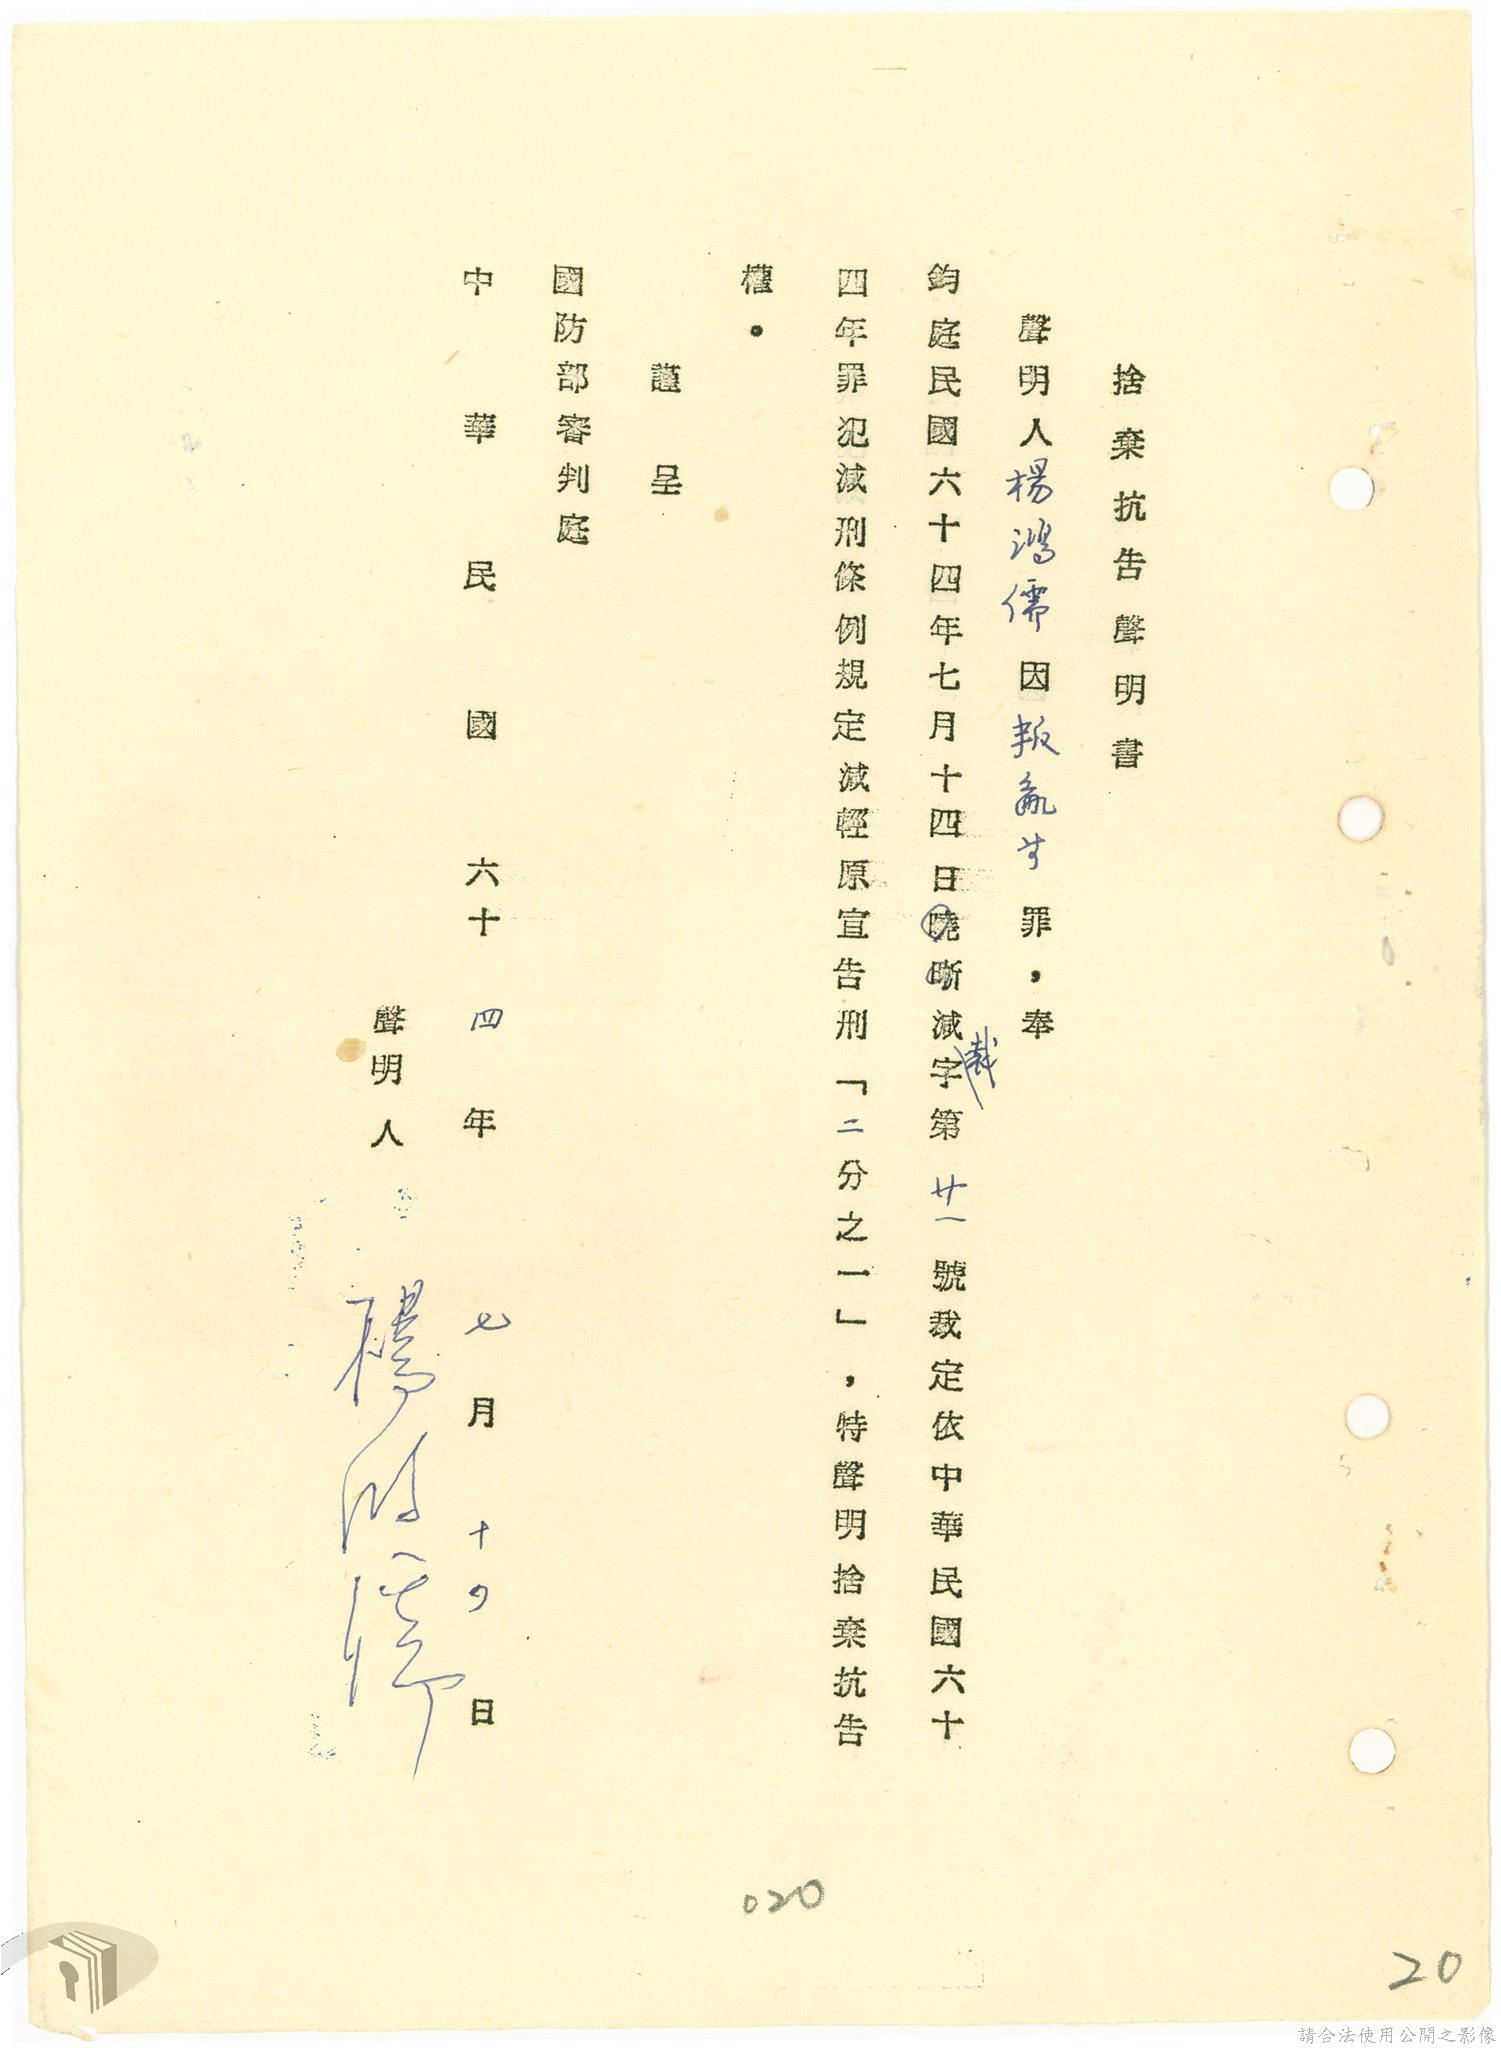 捨棄抗告聲明書
聲明人楊鴻儒因叛亂等罪，奉
鈞庭民國六十四年七月十四日曉晰減字第廿一號裁定依中華民國六十
裁
四年罪犯減刑條例規定減輕原宣告刑「二分之一」，特聲明捨棄抗告
權。
謹呈
國防部審判庭
中華民國六十四年七月十四日
聲明人 楊鴻儒
020
20
請合法使用公開之影像